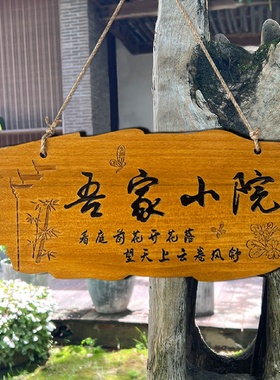 吾家小院
看庭前花开花落
望天上云卷风舒